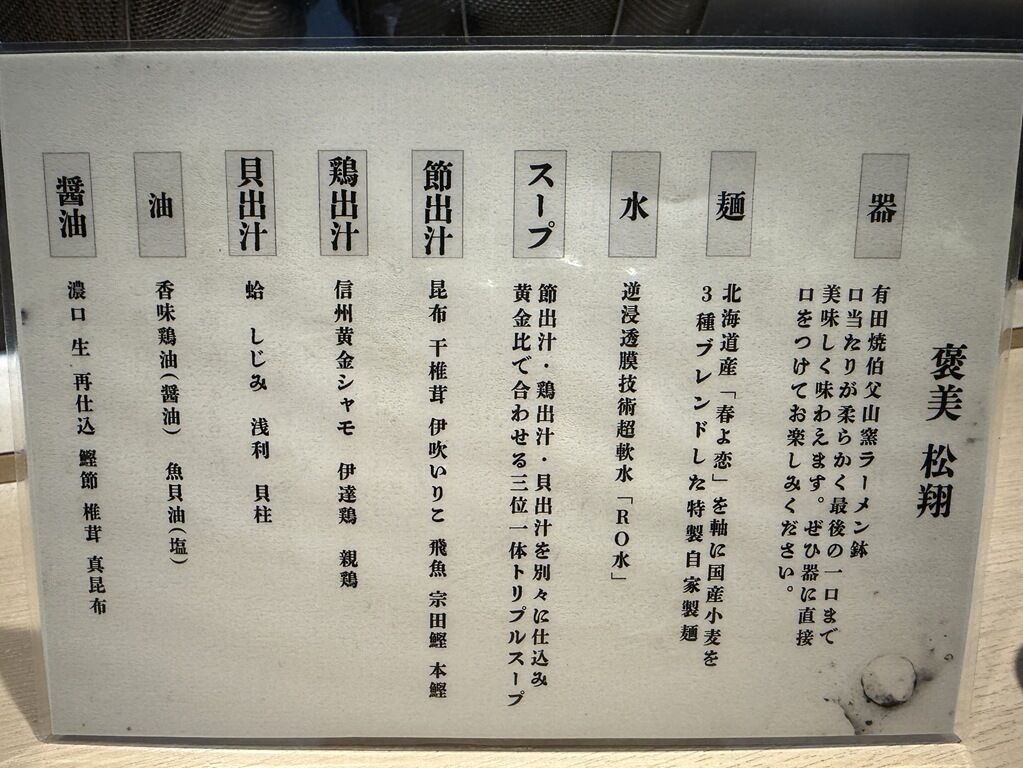 褒美 松翔
器
有田焼伯父山窯ラーメン鉢
口当たりが柔らかく最後の一口まで
美味しく味わえます。ぜひ器に直接
口をつけてお楽しみください。
麺
北海道産「春よ恋」を軸に国産小麦を
3種ブレンドした特製自家製麺
水
逆浸透膜技術超軟水「RO水」
スープ
節出汁・鶏出汁・貝出汁を別々に仕込み
黄金比で合わせる三位一体トリプルスープ
節出汁
昆布 干椎茸 伊吹いりこ 飛魚 宗田鰹 本鰹
鶏出汁
信州黄金シャモ 伊達鶏 親鶏
貝出汁
蛤 しじみ 浅利 貝柱
油
香味鶏油(醤油) 魚貝油(塩)
醤油
濃口 生 再仕込 鰹節 椎茸 真昆布